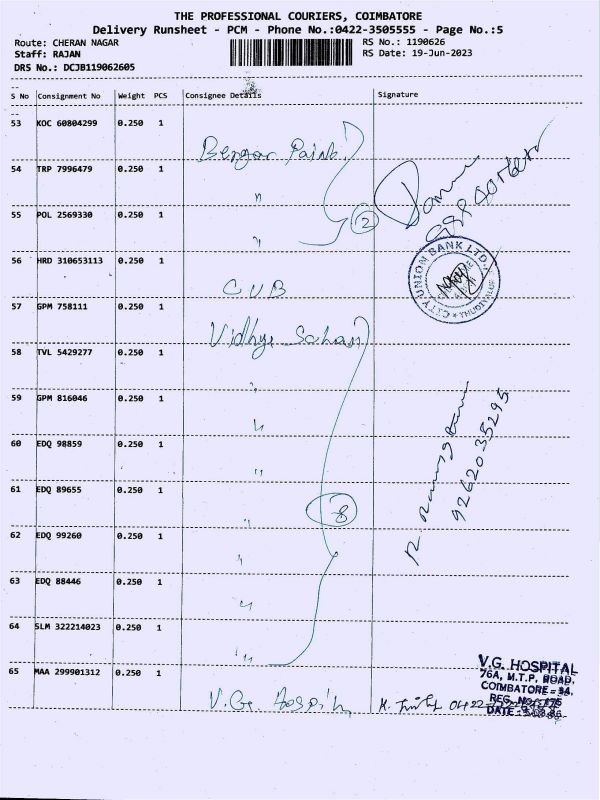 THE PROFESSIONAL COURIERS, COIMBATORE
Delivery Runsheet - PCM - Phone No.:0422-3505555 - Page No.:5
Route: CHERAN NAGAR RS No.: 1190626
Staff: RAJAN RS Date: 19-Jun-2023
DRS No.: DCJB119062605
S No Consignment No Weight PCS Consignee Details Signature
53 KOC 60804299 0.250 1
Berger Paints
54 TRP 7996479 0.250 1
"
55 POL 2569330 0.250 1
" 2
56 HRD 310653113 0.250 1
CUB
CITY UNION BANK LTD.
57 GPM 758111 0.250 1
Vidhya
58 TVL 5429277 0.250 1
"
59 GPM 816046 0.250 1
"
60 EDQ 98859 0.250 1
"
9262035295
61 EDQ 89655 0.250 1
" 8
62 EDQ 99260 0.250 1
"
63 EDQ 88446 0.250 1
"
64 SLM 322214023 0.250 1
"
65 MAA 299901312 0.250 1
V.G. Hospital
V.G. HOSPITAL
76A, M.T.P. ROAD,
COIMBATORE - 34.
REG. NO.
DATE